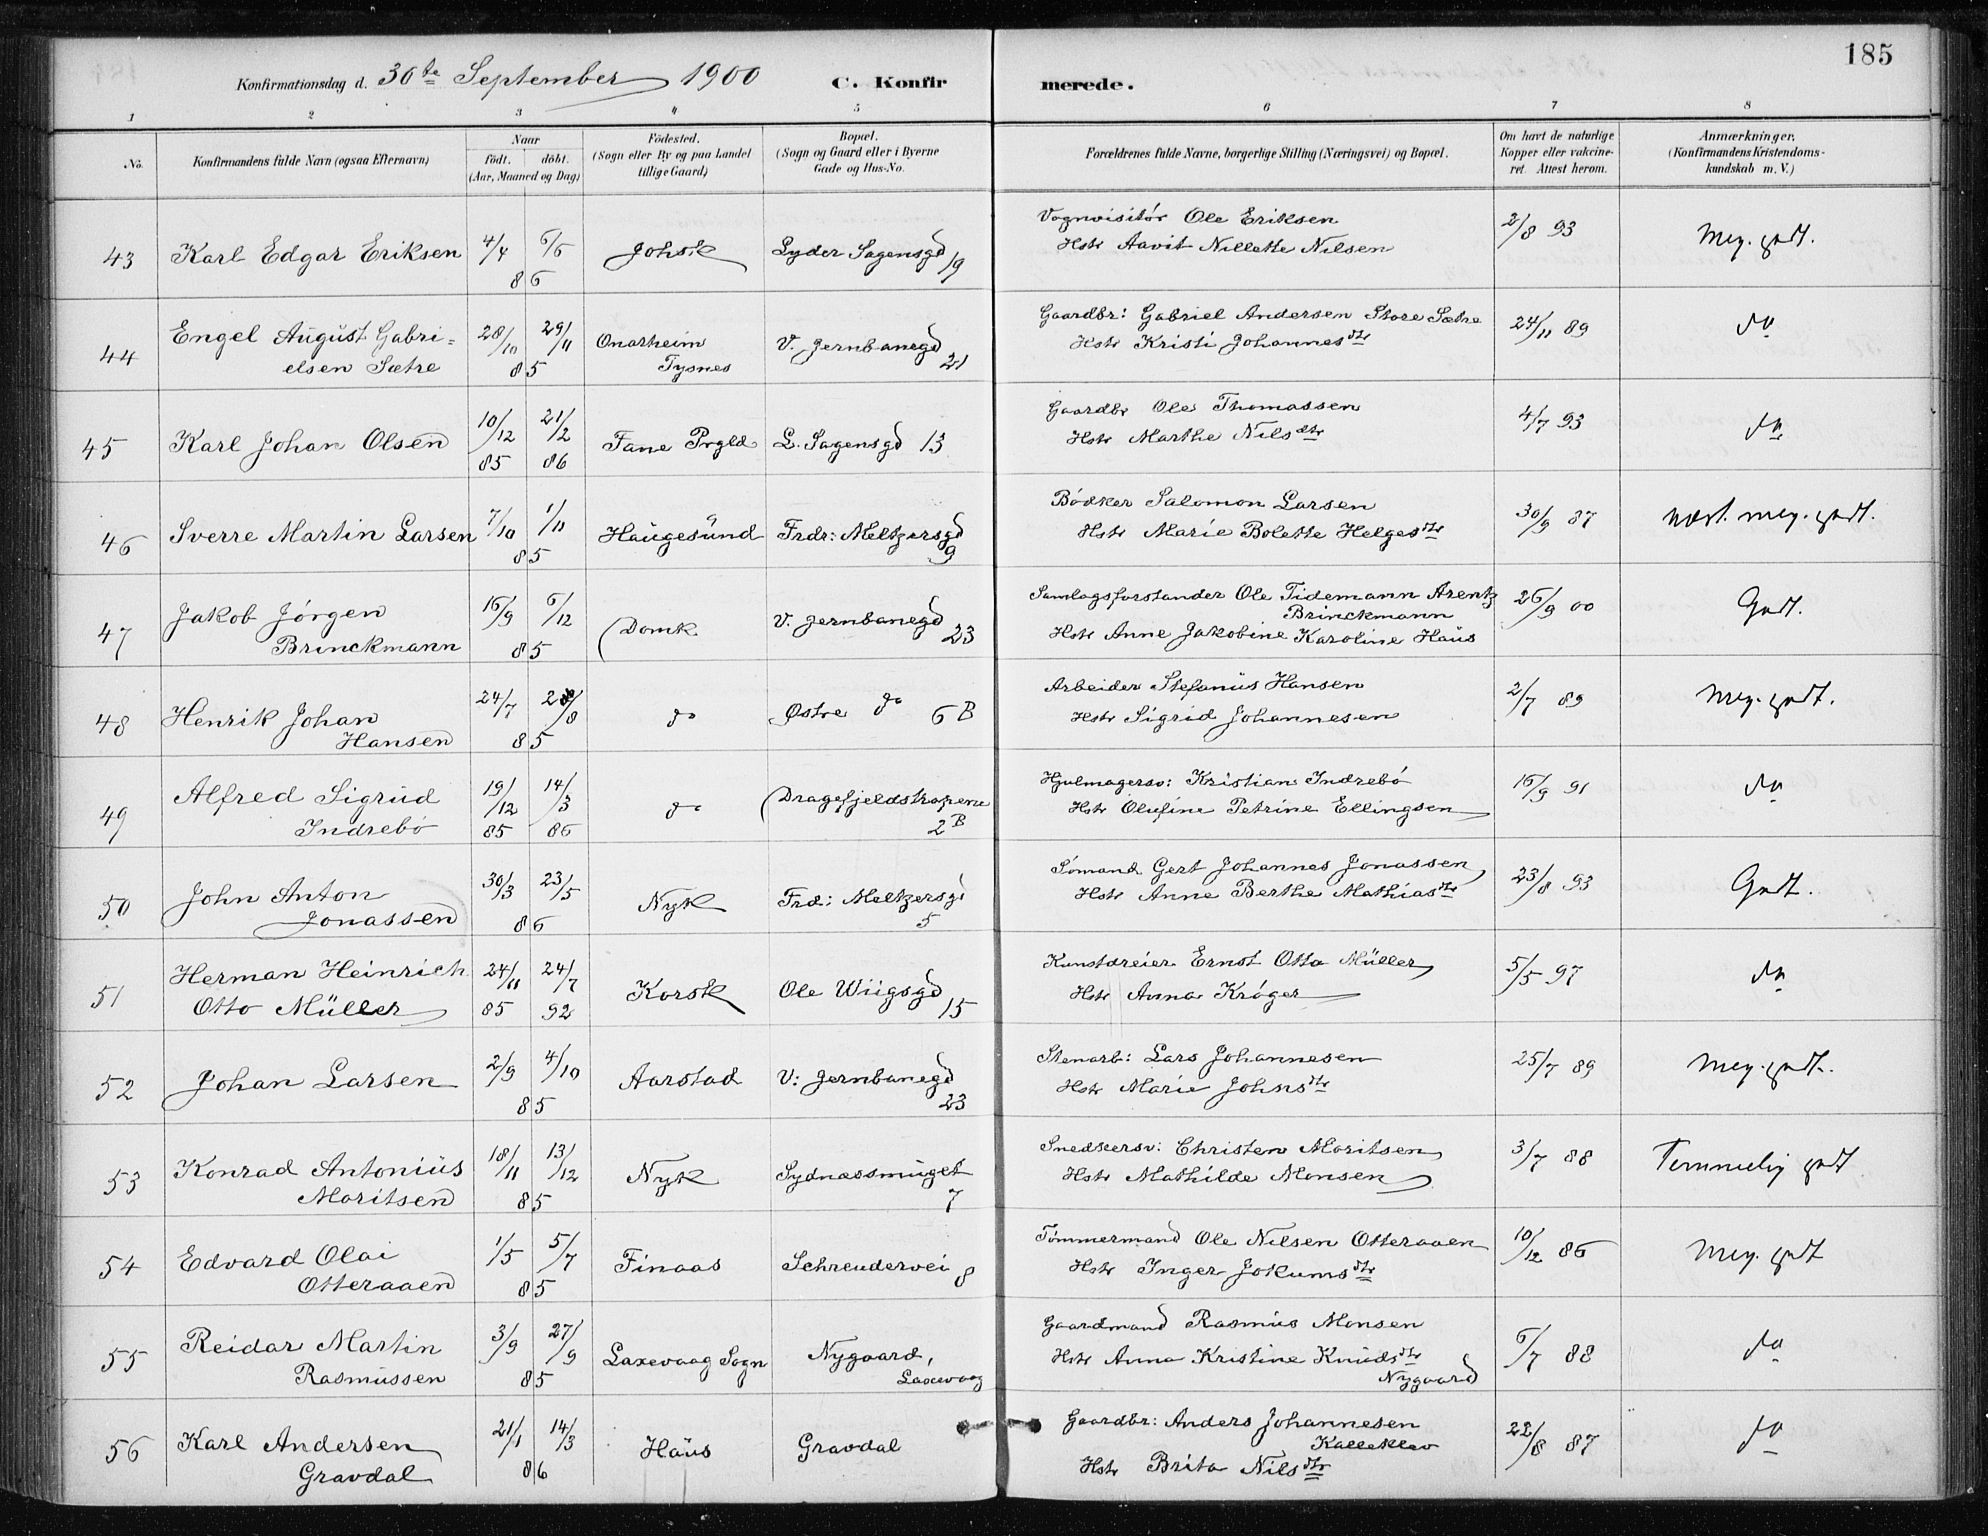 185
Konfirmationsdag d. 30te September 1900 C. Konfirmerede.
1 2 3 4 5 6 7 8
No. Konfirmandens fulde Navn (ogsaa Efternavn) Naar født. døbt. (Aar, Maaned og Dag) Födested. (Sogn eller By og paa Landet tillige Gaard) Bopæl. (Sogn og Gaard eller i Byerne Gade og Hus-No. Forældrenes fulde Navne, borgerlige Stilling (Næringsvei) og Bopæl. Om havt de naturlige Kopper eller vakcineret. Attest herom. Anmærkninger. (Konfirmandens Kristendomskundskab m. V.)
43 Karl Edgar Eriksen 4/4 6/6 86 Johsk Lyder Sagensgd 19 Vognvisitör Ole Eriksen 2/8 93 Meg. godt.
Hstr Aavit Nillette Nilsen
44 Engel August Gabri= 28/10 29/11 85 Onarheim Tysnes V. Jernbanegd 21 Gaardbr: Gabriel Andersen Store Sætre 24/11 89 do
elsen Sætre Hstr Kristi Johannesdtr
45 Karl Johan Olsen 10/12 85 21/2 86 Fane Prgld L. Sagensgd 13 Gaardbr Ole Thomassen 4/7 93 do
Hstr Marthe Nilsdtr
46 Sverre Martin Larsen 7/10 1/11 85 Haugesund Frdr: Meltzersgd 9 Bödker Salomon Larsen 30/9 87 næst. meg. godt.
Hstr Marie Bolette Helgesdtr
47 Jakob Jörgen 16/9 6/12 85 Domk V. Jernbanegd 23 Samlagsforstander Ole Tidemann Arentz 26/9 00 Godt.
Brinckmann Brinckmann
Hstr Anne Jakobine Karoline Haus
48 Henrik Johan 24/7 /8 85 do Østre do 6B Arbeider Stefanus Hansen 2/7 89 Meg. godt.
Hansen Hstr Sigrid Johannesen
49 Alfred Sigrud 19/12 85 14/3 86 do Dragefjeldstrapene 2B Hjulmagersv: Kristian Indrebö 16/9 91 do
Indrebö Hstr Olufine Petrine Ellingsen
50 John Anton 30/3 23/5 86 Nyk Frd: Meltzersgd 5 Sömand Gert Johannes Jonassen 23/8 93 Godt.
Jonassen Hstr Anne Berthe Mathiasdtr
51 Herman Heinrich 24/11 85 24/7 92 Korsk Ole Wiigsgd 15 Kunstdreier Ernst Otto Müller 5/5 97 do
Otto Müller Hstr Anna Kröger
52 Johan Larsen 2/9 4/10 85 Aarstad V: Jernbanegd 23 Stenarb: Lars Johannesen 25/7 89 Meg. godt.
Hstr Marie Johnsdtr
53 Konrad Antonius 18/11 13/12 85 Nyk Sydnæssmuget 7 Snedkersv: Christen Moritsen 3/7 88 Temmelig godt
Moritsen Hstr Mathilde Monsen
54 Edvard Olai 1/5 5/7 85 Finaas Schreudervei 8 Tömmermand Ole Nilsen Otteraaen 10/12 86 Meg. godt
Otteraaen Hstr Inger Jokumsdtr
55 Reidar Martin 3/9 27/9 85 Laxevaag Sogn Nygaard, Laxevaag Gaardmand Rasmus Monsen 6/7 88 do
Rasmussen Hstr Anna Kristine Knudsdtr
Nygaard
56 Karl Andersen 21/1 14/3 86 Haus Gravdal Gaardbr: Anders Johannesen 22/8 87 do
Gravdal Kalleklev
Hstr Brita Nilsdtr